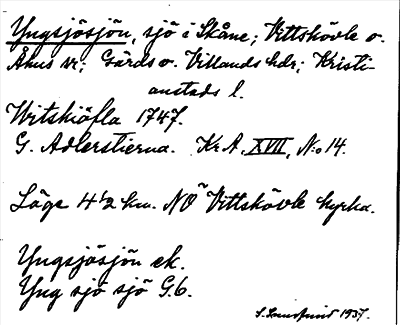 Yngsjösjön, sjö i Skåne; Vittskövle o.
Åhus sr; Gärds o. Villands hdr; Kristi-
anstads l.
Witskiöfla 1747.
G. Adlerstierna. Kr.A. XVII, N:o 14.
Läge 4½ km. NO^n Vittskövle kyrka.
Yngsjösjön ek.
Yng sjö sjö G.b.
1937.